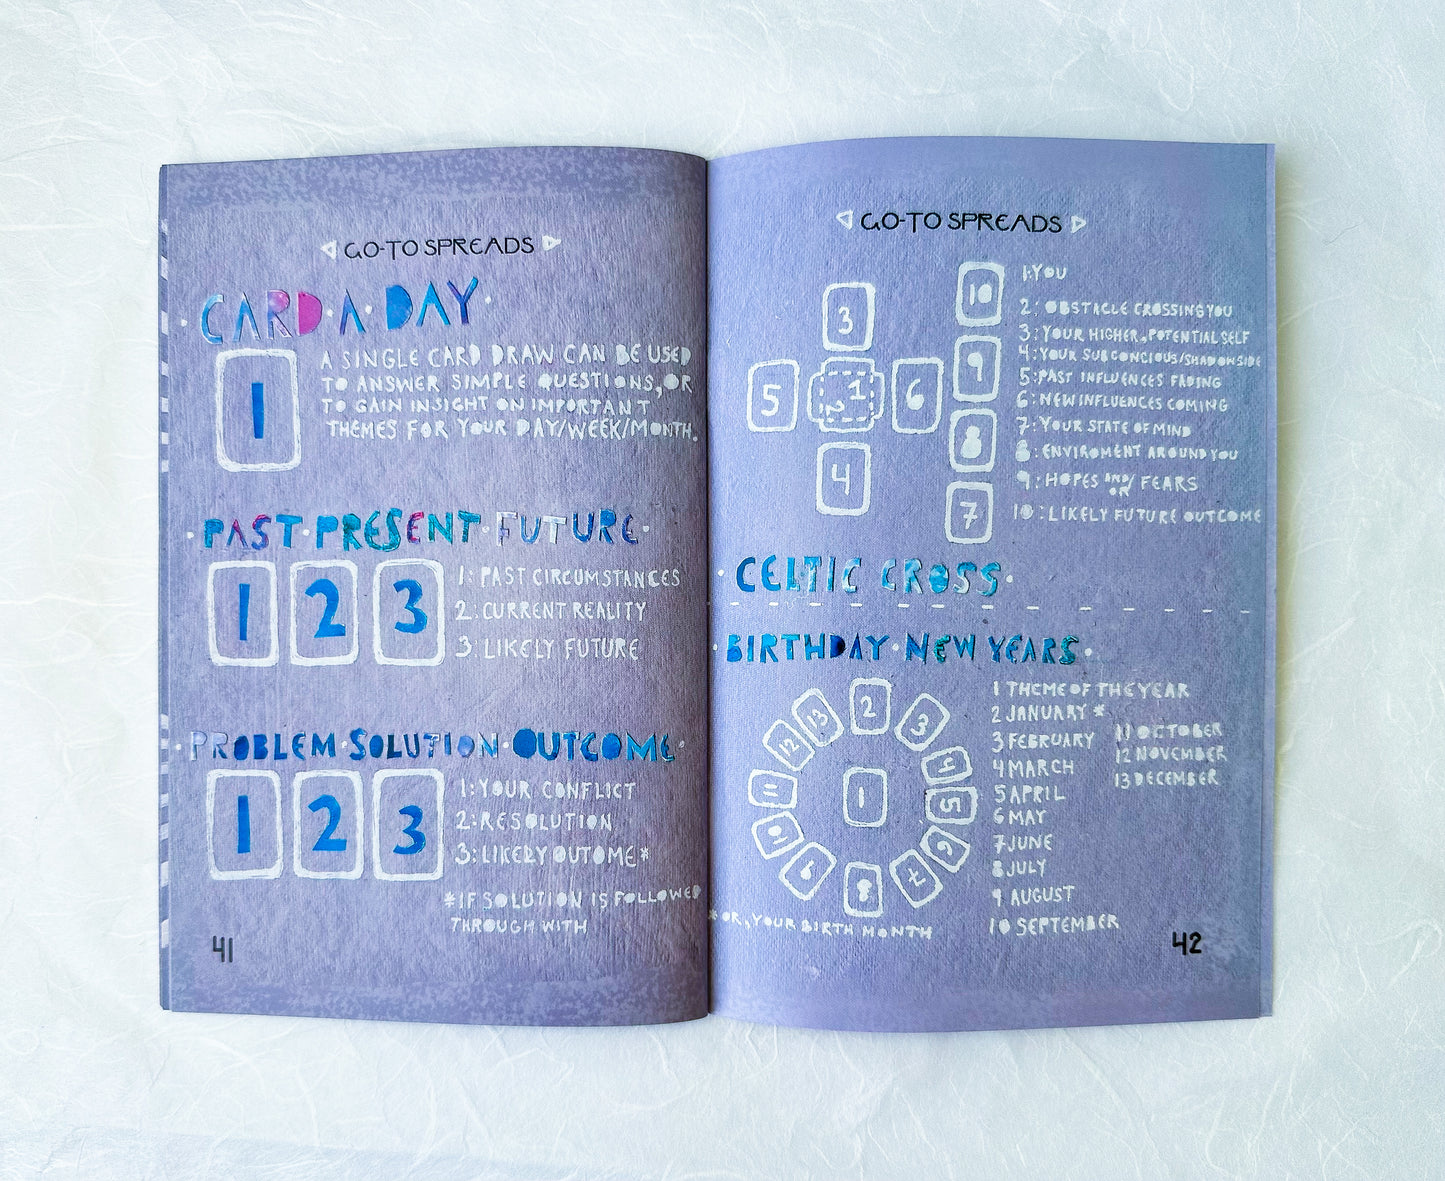 GO-TO SPREADS
CARD·A·DAY
1
A SINGLE CARD DRAW CAN BE USED
TO ANSWER SIMPLE QUESTIONS, OR
TO GAIN INSIGHT ON IMPORTANT
THEMES FOR YOUR DAY/WEEK/MONTH.
·PAST·PRESENT·FUTURE·
1 2 3
1: PAST CIRCUMSTANCES
2: CURRENT REALITY
3: LIKELY FUTURE
·PROBLEM·SOLUTION·OUTCOME·
1 2 3
1: YOUR CONFLICT
2: RESOLUTION
3: LIKELY OUTOME*
*IF SOLUTION IS FOLLOWED
THROUGH WITH
41
GO-TO SPREADS
3
5 1 2 6
4
10
9
8
7
1: YOU
2: OBSTACLE CROSSING YOU
3: YOUR HIGHER, POTENTIAL SELF
4: YOUR SUBCONCIOUS/SHADOW SIDE
5: PAST INFLUENCES FADING
6: NEW INFLUENCES COMING
7: YOUR STATE OF MIND
8: ENVIROMENT AROUND YOU
9: HOPES AND/OR FEARS
10: LIKELY FUTURE OUTCOME
·CELTIC CROSS·
·BIRTHDAY·NEW YEARS·
1
2
3
4
5
6
7
8
9
10
11
12
13
1 THEME OF THE YEAR
2 JANUARY *
3 FEBRUARY
4 MARCH
5 APRIL
6 MAY
7 JUNE
8 JULY
9 AUGUST
10 SEPTEMBER
11 OCTOBER
12 NOVEMBER
13 DECEMBER
* OR, YOUR BIRTH MONTH
42